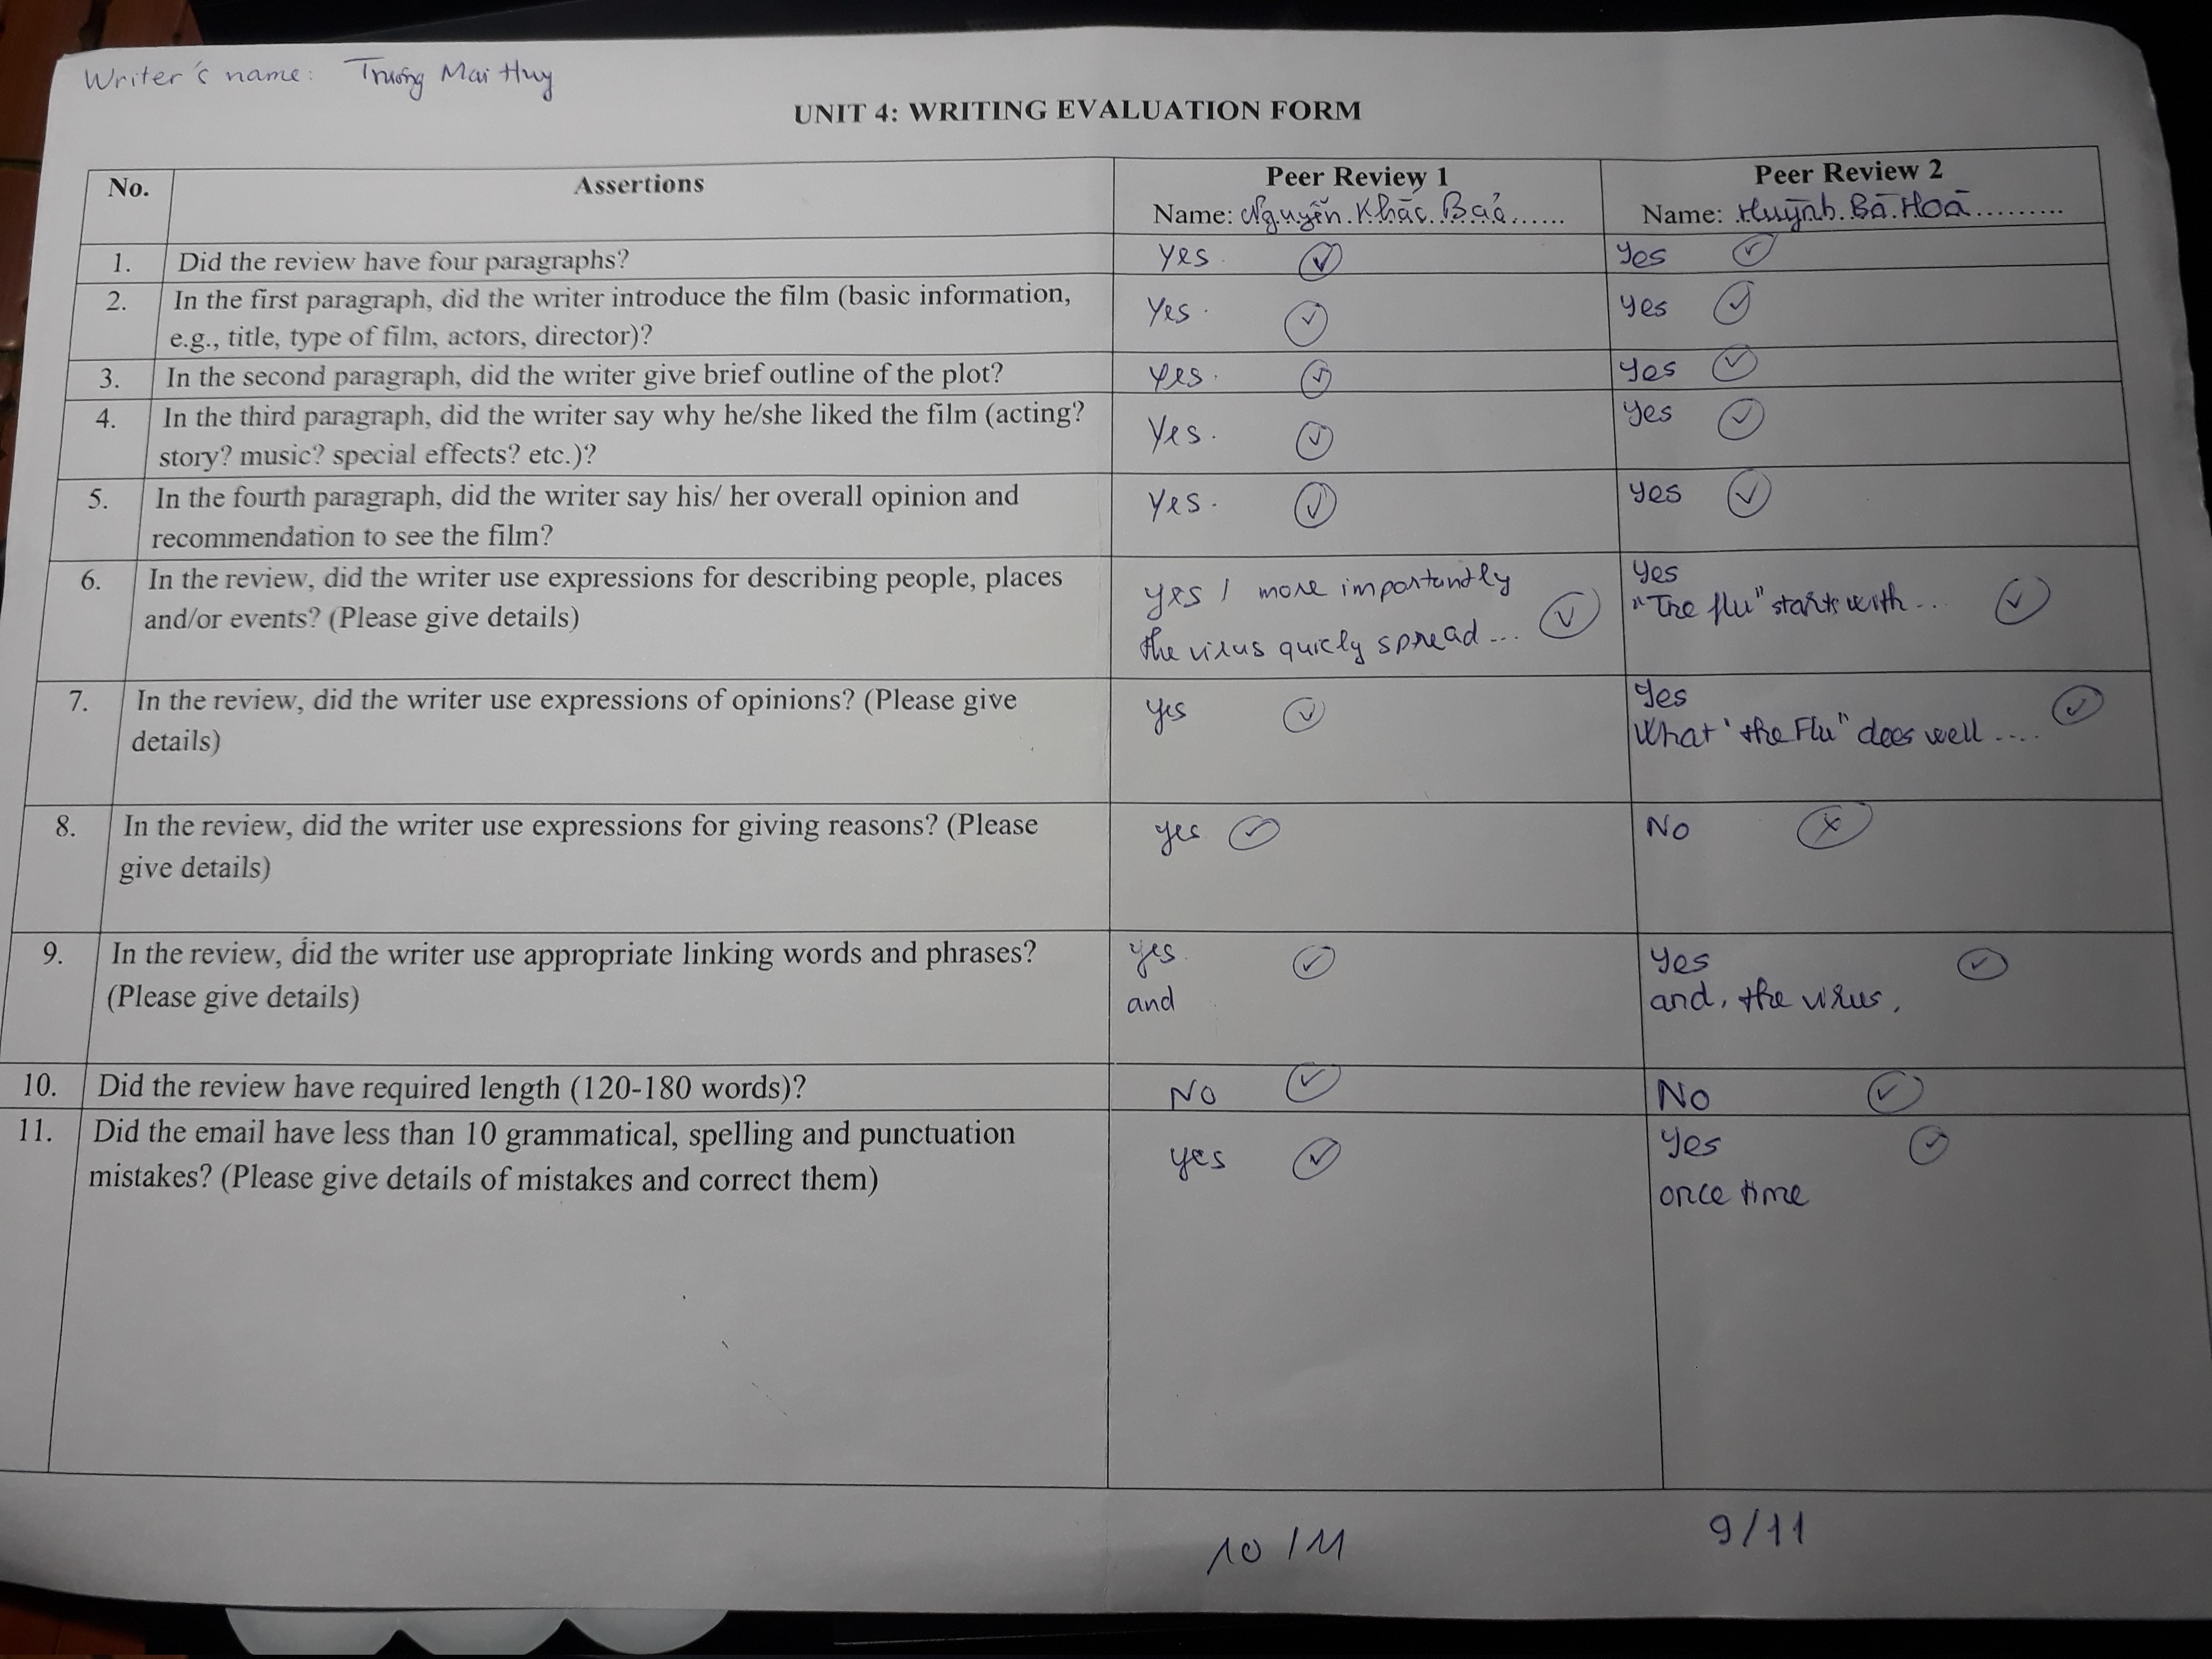 Writer's name: Trương Mai Huy
UNIT 4: WRITING EVALUATION FORM
No. Assertions Peer Review 1 Peer Review 2
Name: Nguyễn Khắc Bảo...... Name: Huỳnh Bá Hoà.........
1. Did the review have four paragraphs? Yes. ✓ Yes ✓
2. In the first paragraph, did the writer introduce the film (basic information, Yes. ✓ Yes ✓
e.g., title, type of film, actors, director)?
3. In the second paragraph, did the writer give brief outline of the plot? Yes. ✓ Yes ✓
4. In the third paragraph, did the writer say why he/she liked the film (acting? Yes. ✓ Yes ✓
story? music? special effects? etc.)?
5. In the fourth paragraph, did the writer say his/ her overall opinion and Yes. ✓ Yes ✓
recommendation to see the film?
6. In the review, did the writer use expressions for describing people, places yes / more importantly Yes
and/or events? (Please give details) the virus quicly spread ... ✓ "The flu" starts with... ✓
7. In the review, did the writer use expressions of opinions? (Please give yes ✓ Yes
details) What "the Flu" does well .... ✓
8. In the review, did the writer use expressions for giving reasons? (Please yes ✓ No ✗
give details)
9. In the review, did the writer use appropriate linking words and phrases? yes. ✓ Yes ✓
(Please give details) and and, the virus,
10. Did the review have required length (120-180 words)? No ✓ No ✓
11. Did the email have less than 10 grammatical, spelling and punctuation yes ✓ Yes ✓
mistakes? (Please give details of mistakes and correct them) once time
10/11 9/11